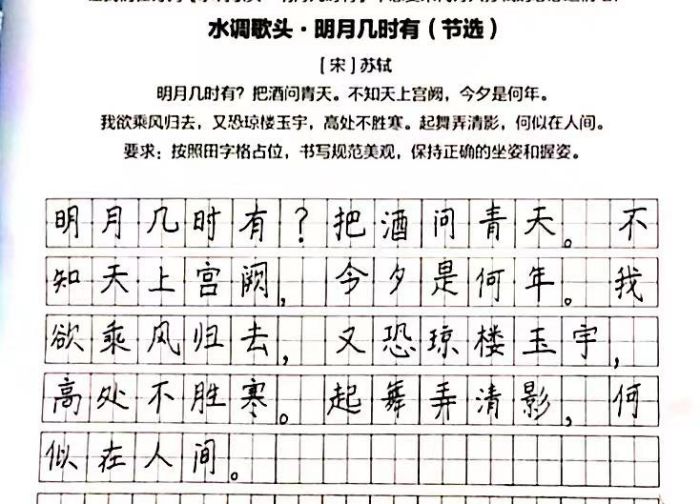 水调歌头·明月几时有（节选）
［宋］苏轼
明月几时有？把酒问青天。不知天上宫阙，今夕是何年。
我欲乘风归去，又恐琼楼玉宇，高处不胜寒。起舞弄清影，何似在人间。
要求：按照田字格占位，书写规范美观，保持正确的坐姿和握姿。
明月几时有？把酒问青天。不
知天上宫阙，今夕是何年。我
欲乘风归去，又恐琼楼玉宇，
高处不胜寒。起舞弄清影，何
似在人间。